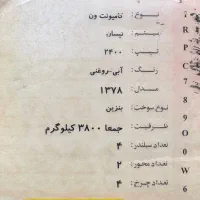 نوع : تامیونت ون
سیستم : نیسان
تیپ : ۲۴۰۰
رنگ : آبی-روغنی
مدل : ۱۳۷۸
نوع سوخت : بنزین
ظرفیت : جمعا ۳۸۰۰ کیلوگرم
تعداد سیلندر : ۴
تعداد محور : ۲
تعداد چرخ : ۴